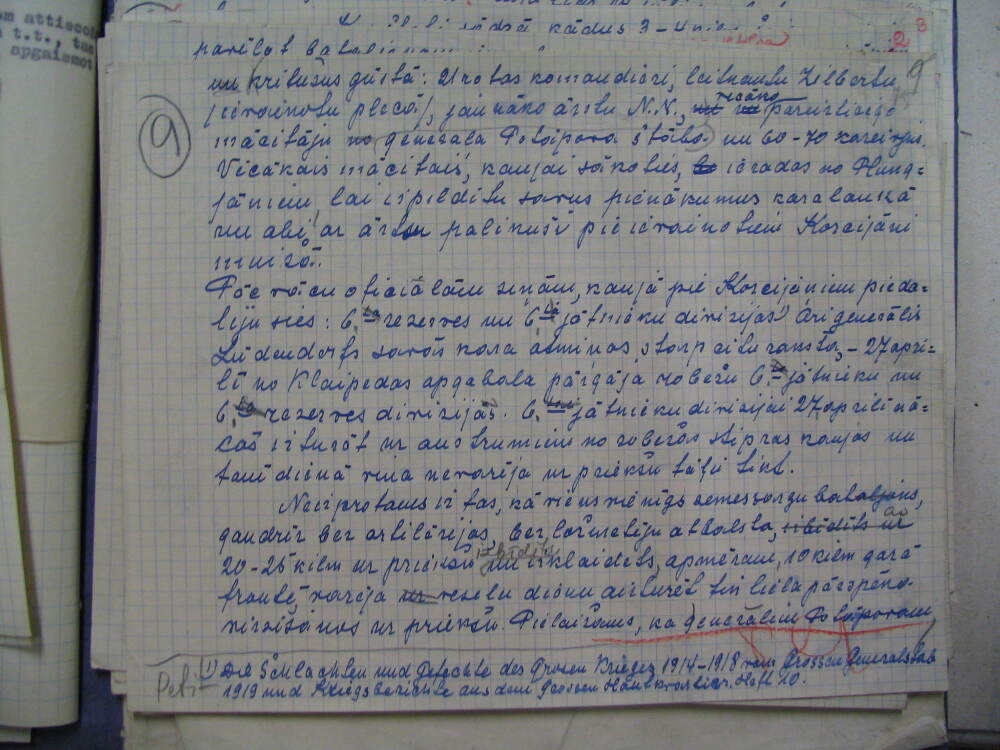 om attiecoš
t.t., tas
apgaismot
kādus 3-4
2 3
un kritušus gūstā: 21 rotas komandieri, leitnantu Zilbertu
/ievainotu plecā/, jaunāko ārstu N.N., vecāko pareizticīgo
9
mācītāju no ģenerāļa Potoipova štāba un 60-70 kareivjus.
Vecākais mācītais, kaujai sākoties, ieradās no Plung-
jāniem, lai izpildītu savus pienākumus karalaukā
un abi ar ārstu palikuši pie ievainotiem Korcijāni
muižā.
Pēc vācu oficiālām ziņām, kaujā pie Korcijāniem pieda-
lijušies: 6. tā rezerves un 6. tā jātnieku divīzijas¹⁾ Arī ģenerālis
Ludendorfs savās kara atmiņās, starp citu raksta, - 27 aprī-
lī no Klaipēdas apgabala pārgāja robežu 6. jātnieku un
6. rezerves divīzijas. 6. jātnieku divīzijai 27 aprilī nā-
cās izturēt uz austrumiem no robežas stipras kaujas un
tanī dienā viņa nevarēja uz priekšu tāļu tikt.
Neizprotams ir tas, kā viens vienīgs zemessargu bataljons,
gandrīz bez artilērijas, bez ložmetēju atbalsta, izbīdīts
20-25 kilm uz priekšu un izklaidēts, apmēram, 10 kilm garā
frontē, varēja veselu dienu aizturēt tik liela pārspēka
virzīšanos uz priekšu. Pielaižams, ka ģenerālim Potoipovam
1) Die Schlachten und Gefechte des Grosen Krieges 1914-1918 vom Grossen Generalstab
1919 und Kriegsberichte aus dem Grossen Hauptkvartier. Heft 20.